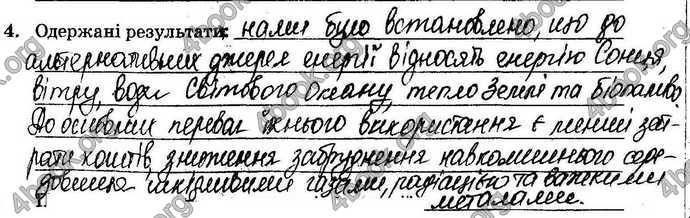 4. Одержані результати: нами було встановлено, що до
альтернативних джерел енергії відносять енергію Сонця,
вітру, води Світового океану, тепло Землі та біопаливо.
До основних переваг їхнього використання є менші зат-
рати коштів, зниження забруднення навколишнього сере-
довища шкідливими газами, радіацією та важкими
металами.